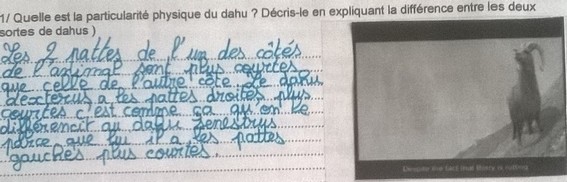 1/ Quelle est la particularité physique du dahu ? Décris-le en expliquant la différence entre les deux
sortes de dahus )
Les 2 pattes de l'un des côtés
de l'animal sont plus courtes
que celle de l'autre côté. Le dahu
dexterus a les pattes droites plus
courtes c'est comme ça qu'on le
différencit au dahu senestrus
parce que lui il a les pattes
gauches plus courtes.
Despite the fact that Barry is